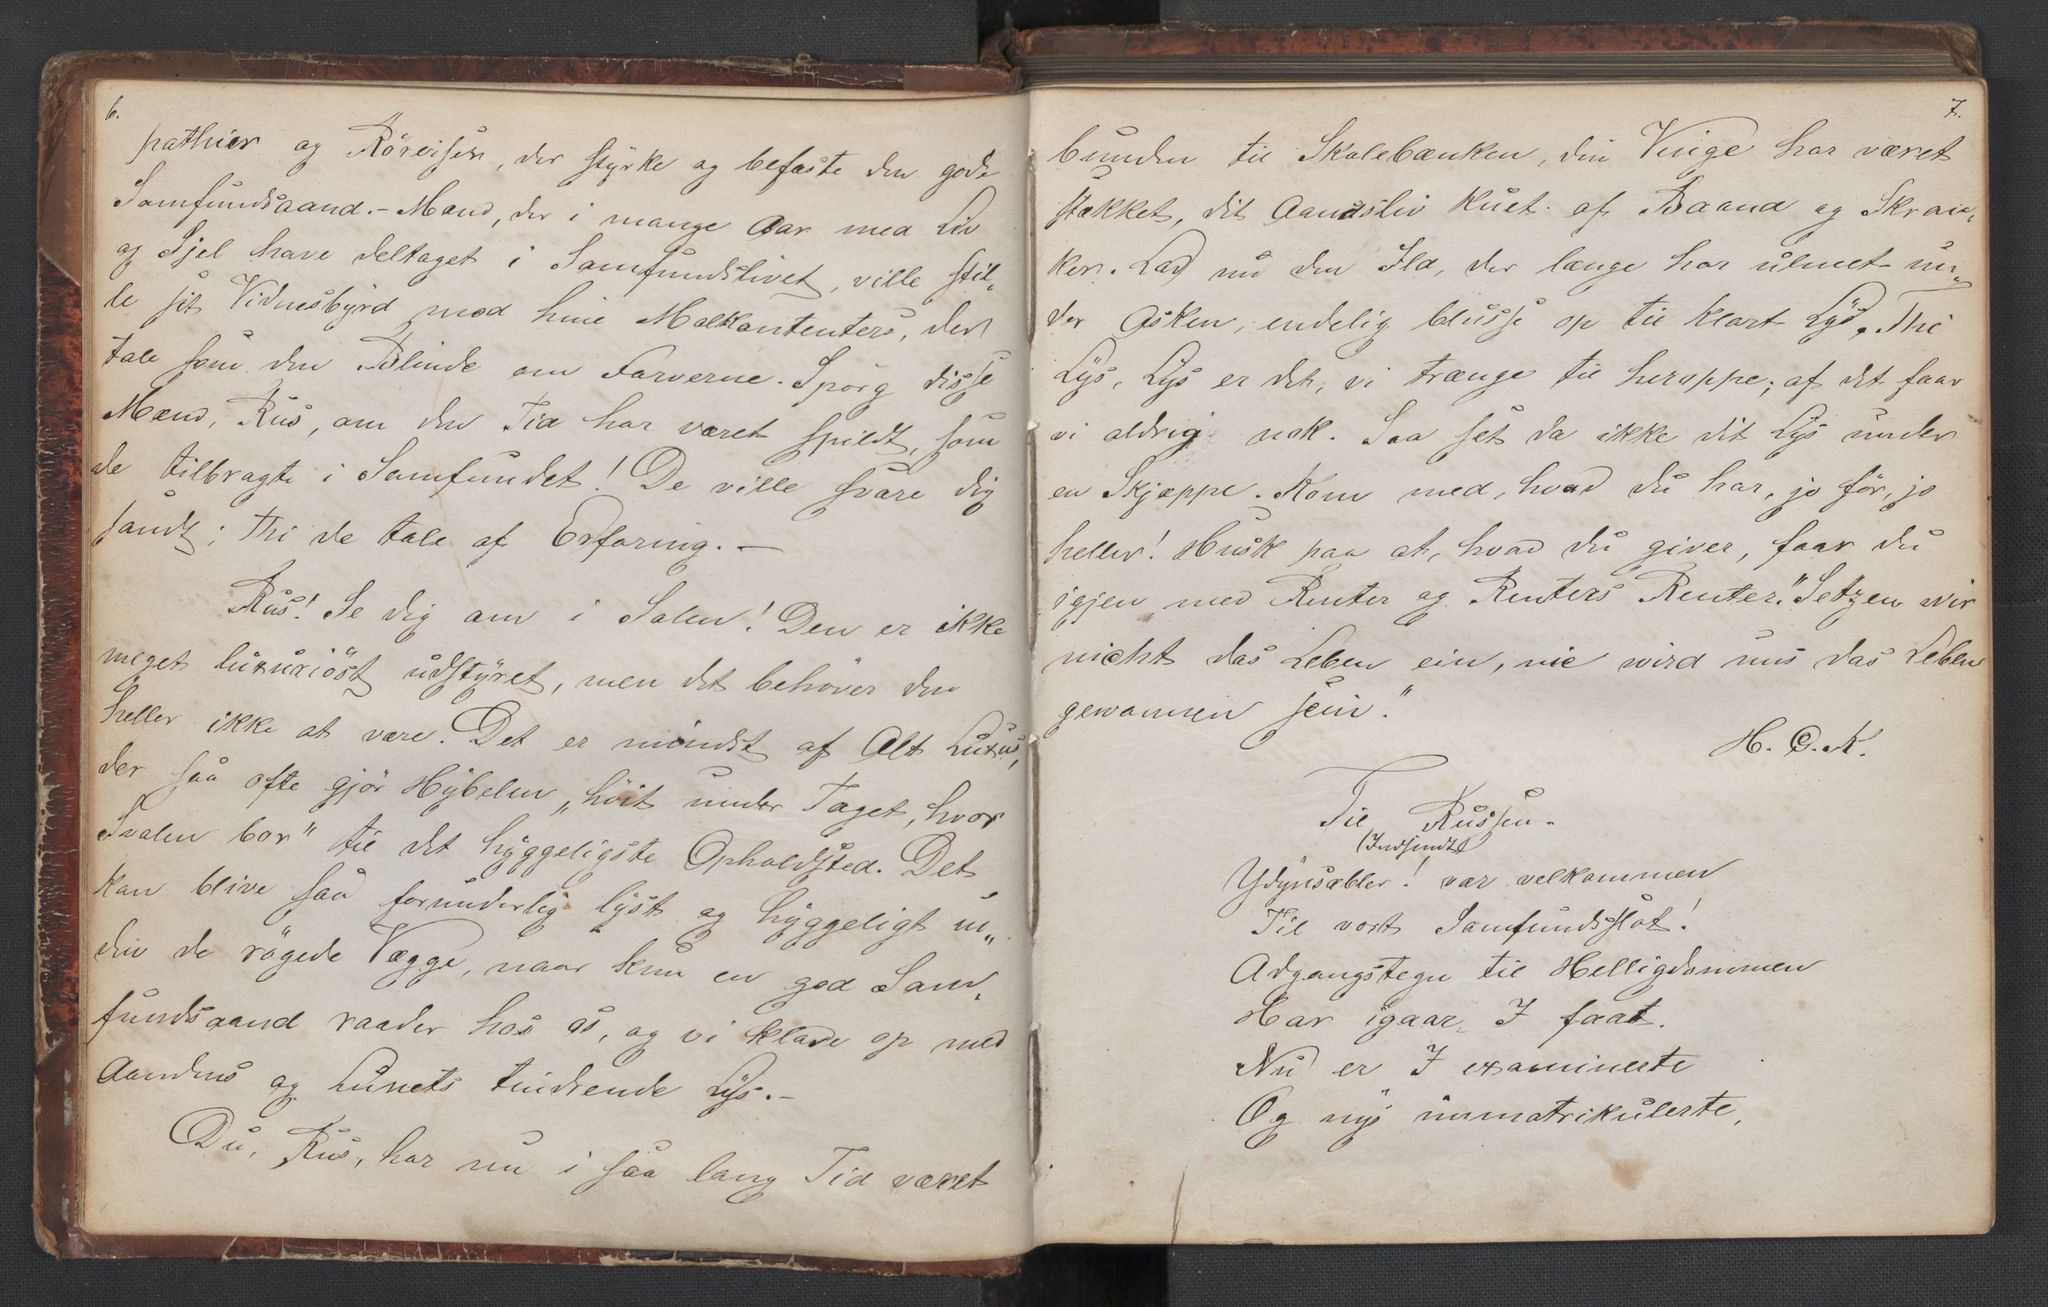 6.
pathier og Rörelser, der styrke og befæste den gode
Samfundsaand. – Mænd, der i mange Aar med Liv
og Sjel have deltaget i Samfundslivet, ville stil„
le sit Vidnesbyrd mod hine Malkontenters, der
tale som den Blinde om Farverne. Spörg disse
Mænd, Rus, om den Tid har været spildt, som
de tilbragte i Samfundet! De ville svare dig
sandt; thi de tale af Erfaring. –
Rus! Se dig om i Salen! Den er ikke
meget luxuriöst udstyret, men det behöver den
heller ikke at være. Det er mindst af Alt Luxus,
der saa ofte gjör Hybelen „höit under Taget, hvor
Svalen bor" til det hyggeligste Opholdsted. Det
kan blive saa forunderlig lyst og hyggeligt in„
den de rögede Vægge, naar kun en god Sam„
fundsaand raader hos os, og vi klare op med
Aandens og Lunets tindrende Lys. –
Du, Rus, har nu i saa lang Tid været
7.
bunden til Skolebænken, din Vinge har været
stækket, dit Aandsliv kuet af Baand og Skran„
ker. Lad nu den Ild, der længe har ulmet un„
der Asken, endelig blusse op til klart Lys. Thi
Lys, Lys er det, vi trænge til heroppe; af det faar
vi aldrig nok. Saa sæt da ikke dit Lys under
en Skjæppe. Kom med, hvad du har, jo för, jo
heller! Husk paa at, hvad du giver, faar du
igjen med Renter og Renters Renter. "Setzen wir
nicht das Leben ein, nie wird uns das Leben
gewonnen sein."
H. C. K.
Til Russen.
(Indsendt)
Ydynsæbler! vær velkommen
Til vort Samfundsslot!
Adgangstegn til Helligdommen
Har igaar I faat.
Nu er I examinerte
Og nys immatrikulerte,